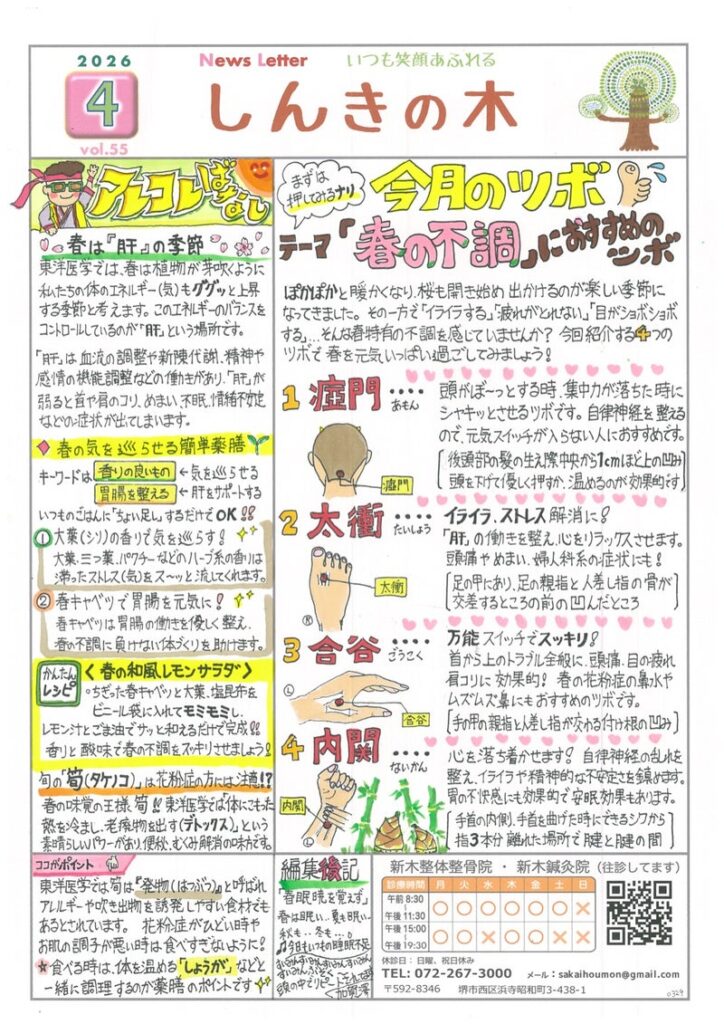 2026
4
vol.55
News Letter
いつも笑顔あふれる
しんきの木
アレコレばなし
春は『肝』の季節
東洋医学では、春は植物が芽吹くように
私たちの体のエネルギー(気)もググッと上昇
する季節と考えます。このエネルギーのバランスを
コントロールしているのが「肝」という場所です。
「肝」は血流の調整や新陳代謝、精神や
感情の機能調整などの働きがあり、「肝」が
弱ると首や肩のコリ、めまい、不眠、情緒不安定
などの症状が出てしまいます。
春の気を巡らせる簡単薬膳
キーワードは 香りの良いもの ← 気を巡らせる
胃腸を整える ← 肝をサポートする
いつものごはんに「ちょい足し」するだけでOK!!
① 大葉(シソ)の香りで気を巡らす!
大葉、三つ葉、パクチーなどのハーブ系の香りは
滞ったストレス(気)をス〜ッと流してくれます。
② 春キャベツで胃腸を元気に!
春キャベツは胃腸の働きを優しく整え、
春の不調に負けない体づくりを助けます。
かんたんレシピ
〈春の和風レモンサラダ〉
ちぎった春キャベツと大葉、塩昆布を
ビニール袋に入れてモミモミし、
レモン汁とごま油でサッと和えるだけで完成!!
香りと酸味で春の不調をスッキリさせましょう!
旬の「筍(タケノコ)」は花粉症の方には注意!?
春の味覚の王様、筍!!東洋医学では「体にこもった
熱を冷まし、老廃物を出す(デトックス)」という
素晴らしいパワーがあり、便秘、むくみ解消の味方です。
ココがポイント
東洋医学では筍は『発物(はつぶつ)』と呼ばれ
アレルギーや吹き出物を誘発しやすい食材でも
あるとされています。花粉症がひどい時や
お肌の調子が悪い時は食べすぎないように!
★食べる時は、体を温める「しょうが」などと
一緒に調理するのが薬膳のポイントです
まずは
押してみるナリ
今月のツボ
テーマ「春の不調」におすすめのツボ
ぽかぽかと暖かくなり、桜も開き始め出かけるのが楽しい季節に
なってきました。その一方で「イライラする」、「疲れがとれない」、「目がショボショボ
する」...そんな春特有の不調を感じていませんか?今回紹介する4つの
ツボで春を元気いっぱい過ごしてみましょう!
1 瘂門 ‥‥ あもん
頭がぼ〜っとする時、集中力が落ちた時に
シャキッとさせるツボです。自律神経を整える
ので、元気スイッチが入らない人におすすめです。
[後頭部の髪の生え際中央から1cmほど上の凹み
頭を下げて優しく押すか、温めるのが効果的です]
瘂門
2 太衝 ‥‥ たいしょう
イライラ、ストレス解消に!
「肝」の働きを整え、心をリラックスさせます。
頭痛やめまい、婦人科系の症状にも!
[足の甲にあり、足の親指と人差し指の骨が
交差するところの前の凹んだところ]
太衝
R
3 合谷 ‥‥ ごうこく
万能スイッチでスッキリ!
首から上のトラブル全般に、頭痛、目の疲れ
肩コリに効果的!春の花粉症の鼻水や
ムズムズ鼻にもおすすめのツボです。
[手の甲の親指と人差し指が交わる付け根の凹み]
L
合谷
4 内関 ‥‥ ないかん
心を落ち着かせます!自律神経の乱れを
整え、イライラや精神的な不安定さを鎮めます。
胃の不快感にも効果的で安眠効果もあります。
[手首の内側、手首を曲げた時にできるシワから
指3本分離れた場所で腱と腱の間]
内関
L
編集後記
「春眠暁を覚えず」
春は眠い‥夏も眠い‥
秋も‥冬も‥
今日もいつもの睡眠不足
頭の中でリピート
加賀澤
新木整体整骨院 ・ 新木鍼灸院 (往診してます)
診療時間 月 火 水 木 金 土 日
午前 8:30 ~ 午後 11:30 ○ ○ ○ ○ ○ ○ ×
午後 15:00 ~ 午後 19:30 ○ ○ × ○ ○ × ×
休診日:日曜、祝日休み
TEL: 072-267-3000 メール:sakaihoumon@gmail.com
〒592-8346 堺市西区浜寺昭和町3-438-1
0329